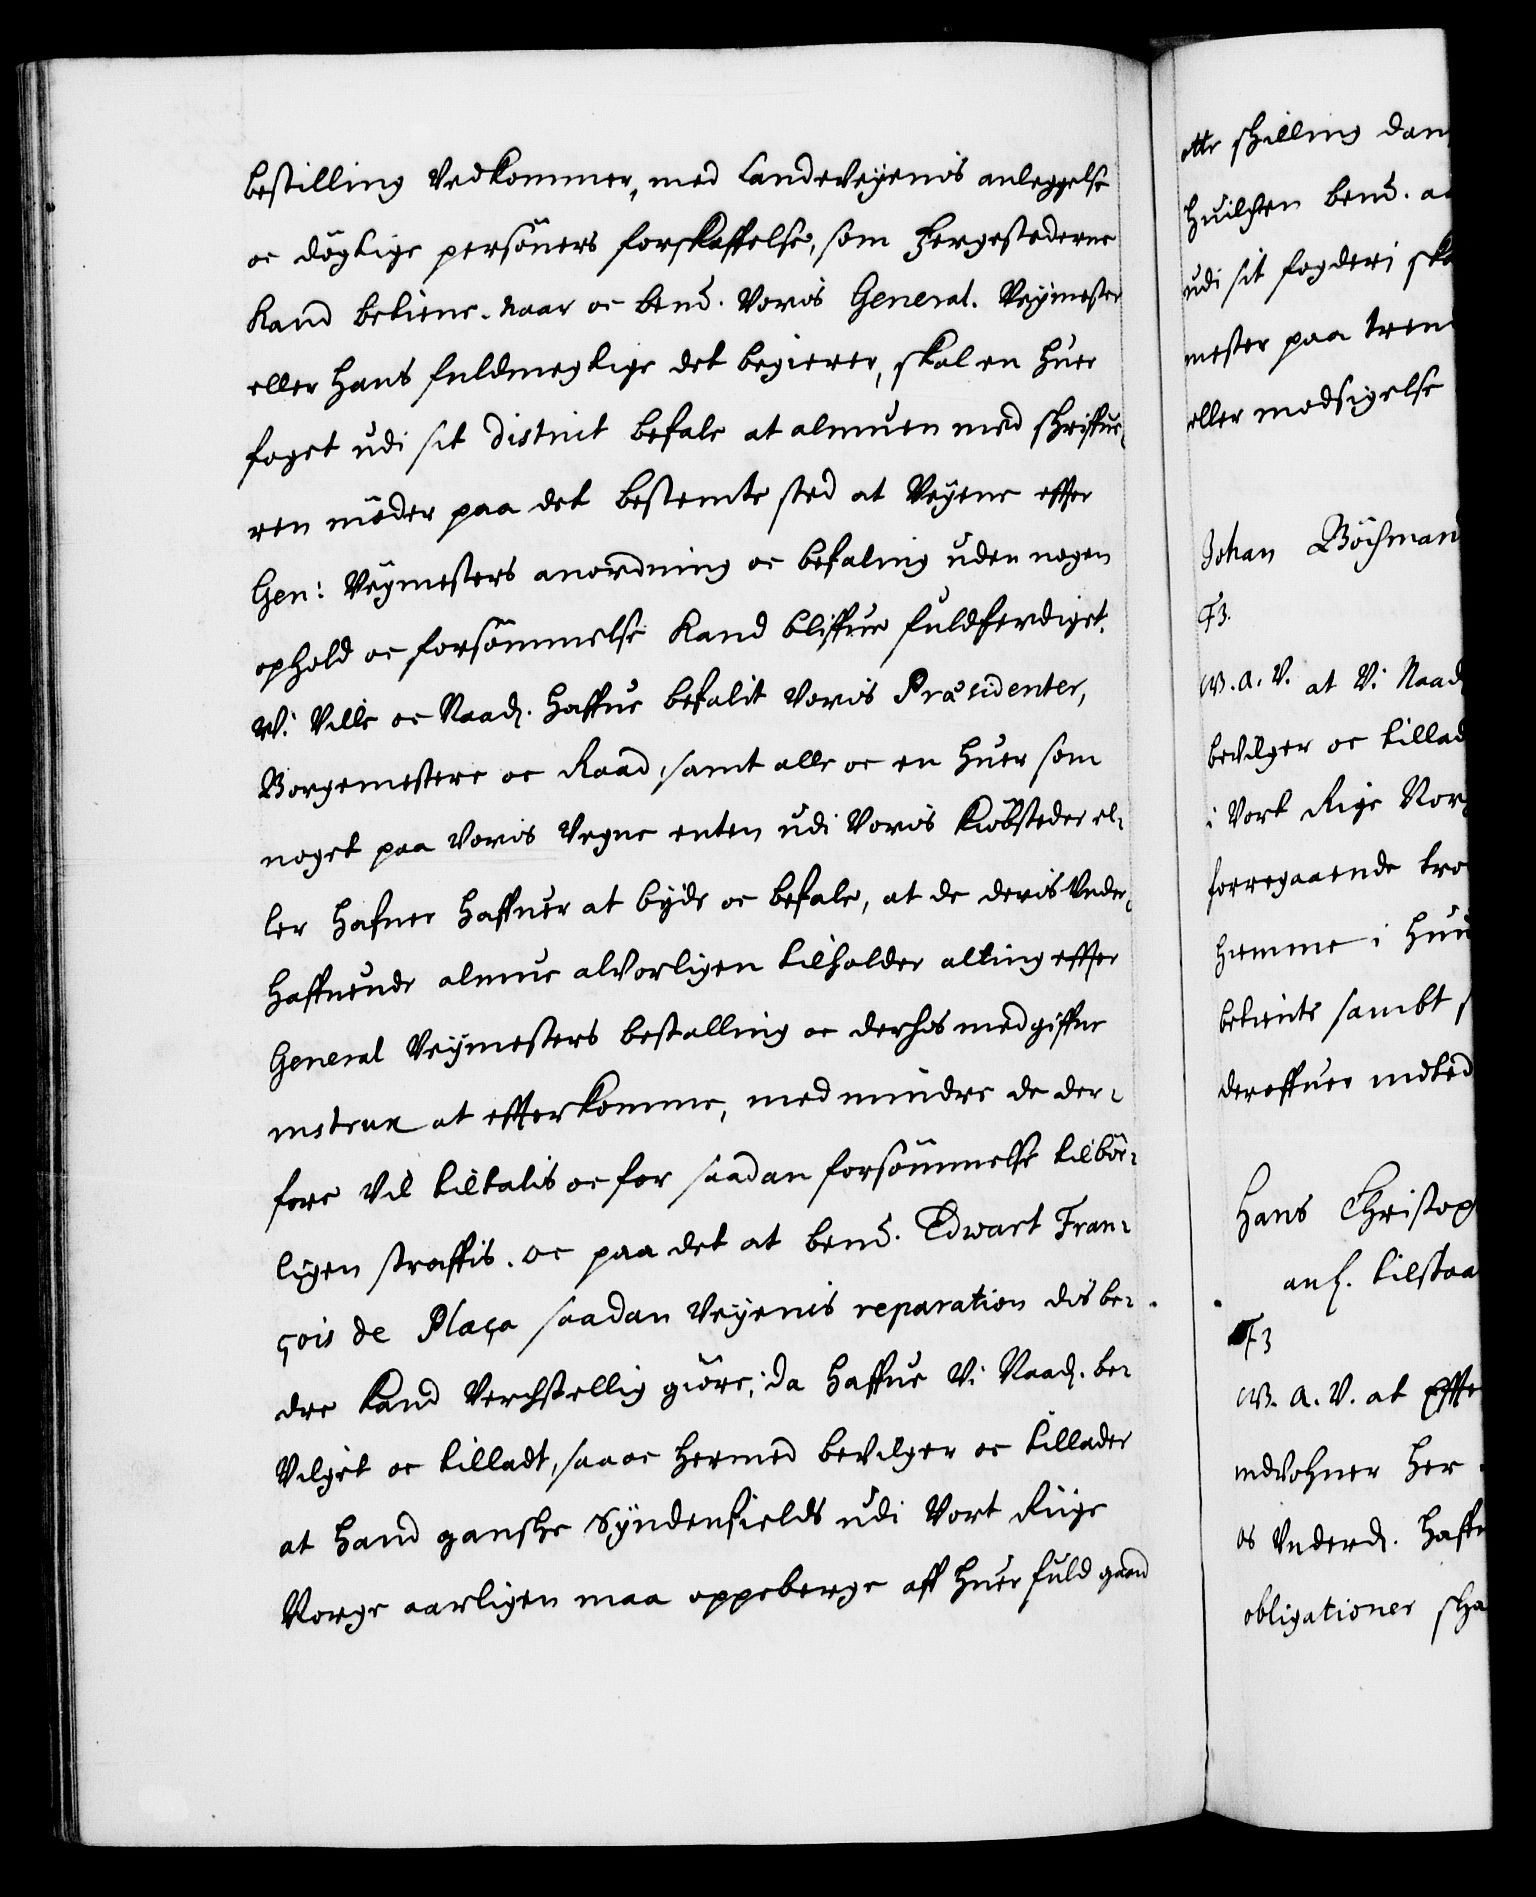 bestilling vedkommer, med Landeveyenis anleggelse
oc dögtige persöners forskaffelse, som Fergestederne
kand betiene. Naar oc bemd. Voris General. Veymester
eller hans fuldmegtige det begierer, skal en huer
foget udi sit District befale at almuen med
ren möder paa det bestemte sted at Veyene effter
Gen: Veymesters anordning oc befaling uden nogen
ophold oc forsömmelse kand bliffue fuldferdiget.
Vi Ville oc Naadl. haffue befalit Voris Præsidenter,
Borgemestere oc Raad, samt alle oc en huer som
noget paa Voris Vegne enten udi Voris Kiöbsteder el-
ler hafner haffuer at byde oc befale, at de deris Vnder-
haffuende almue alvorligen tilholder alting effter
General Veymesters bestalling oc derhos medgiffne
instrux at efterkomme, med mindre de der-
fore vil tiltalis oc for saadan forsömmelse tilbör-
ligen straffis. oc paa det at bemd. Edwart Fran-
çois de Plaça saadan Veyenis reparation dis be-
dre kand Verchstellig giöre, da haffue Vi Naadl. be-
vilget oc tilladt, saa oc hermed bevilger oc tillader
at hand gansche Syndenfields udi Vort Rige
Norge aarligen maa oppeberge aff huer fuld gaard
otte skilling
huilchen bemd.
udi sit fogderi
mester paa
eller modsigelse
Johan Böchman
F3.
W. A. V. at Vi Naad
bevilger oc tillad
i Vort Rige Nor
forregaaende tro
hiemme i
betiente sambt
deroffuer
Hans Christop
anl. tilstaa
F3
W. A. V. at Effte
indvohner her
os Vnderd. haffu
obligationer